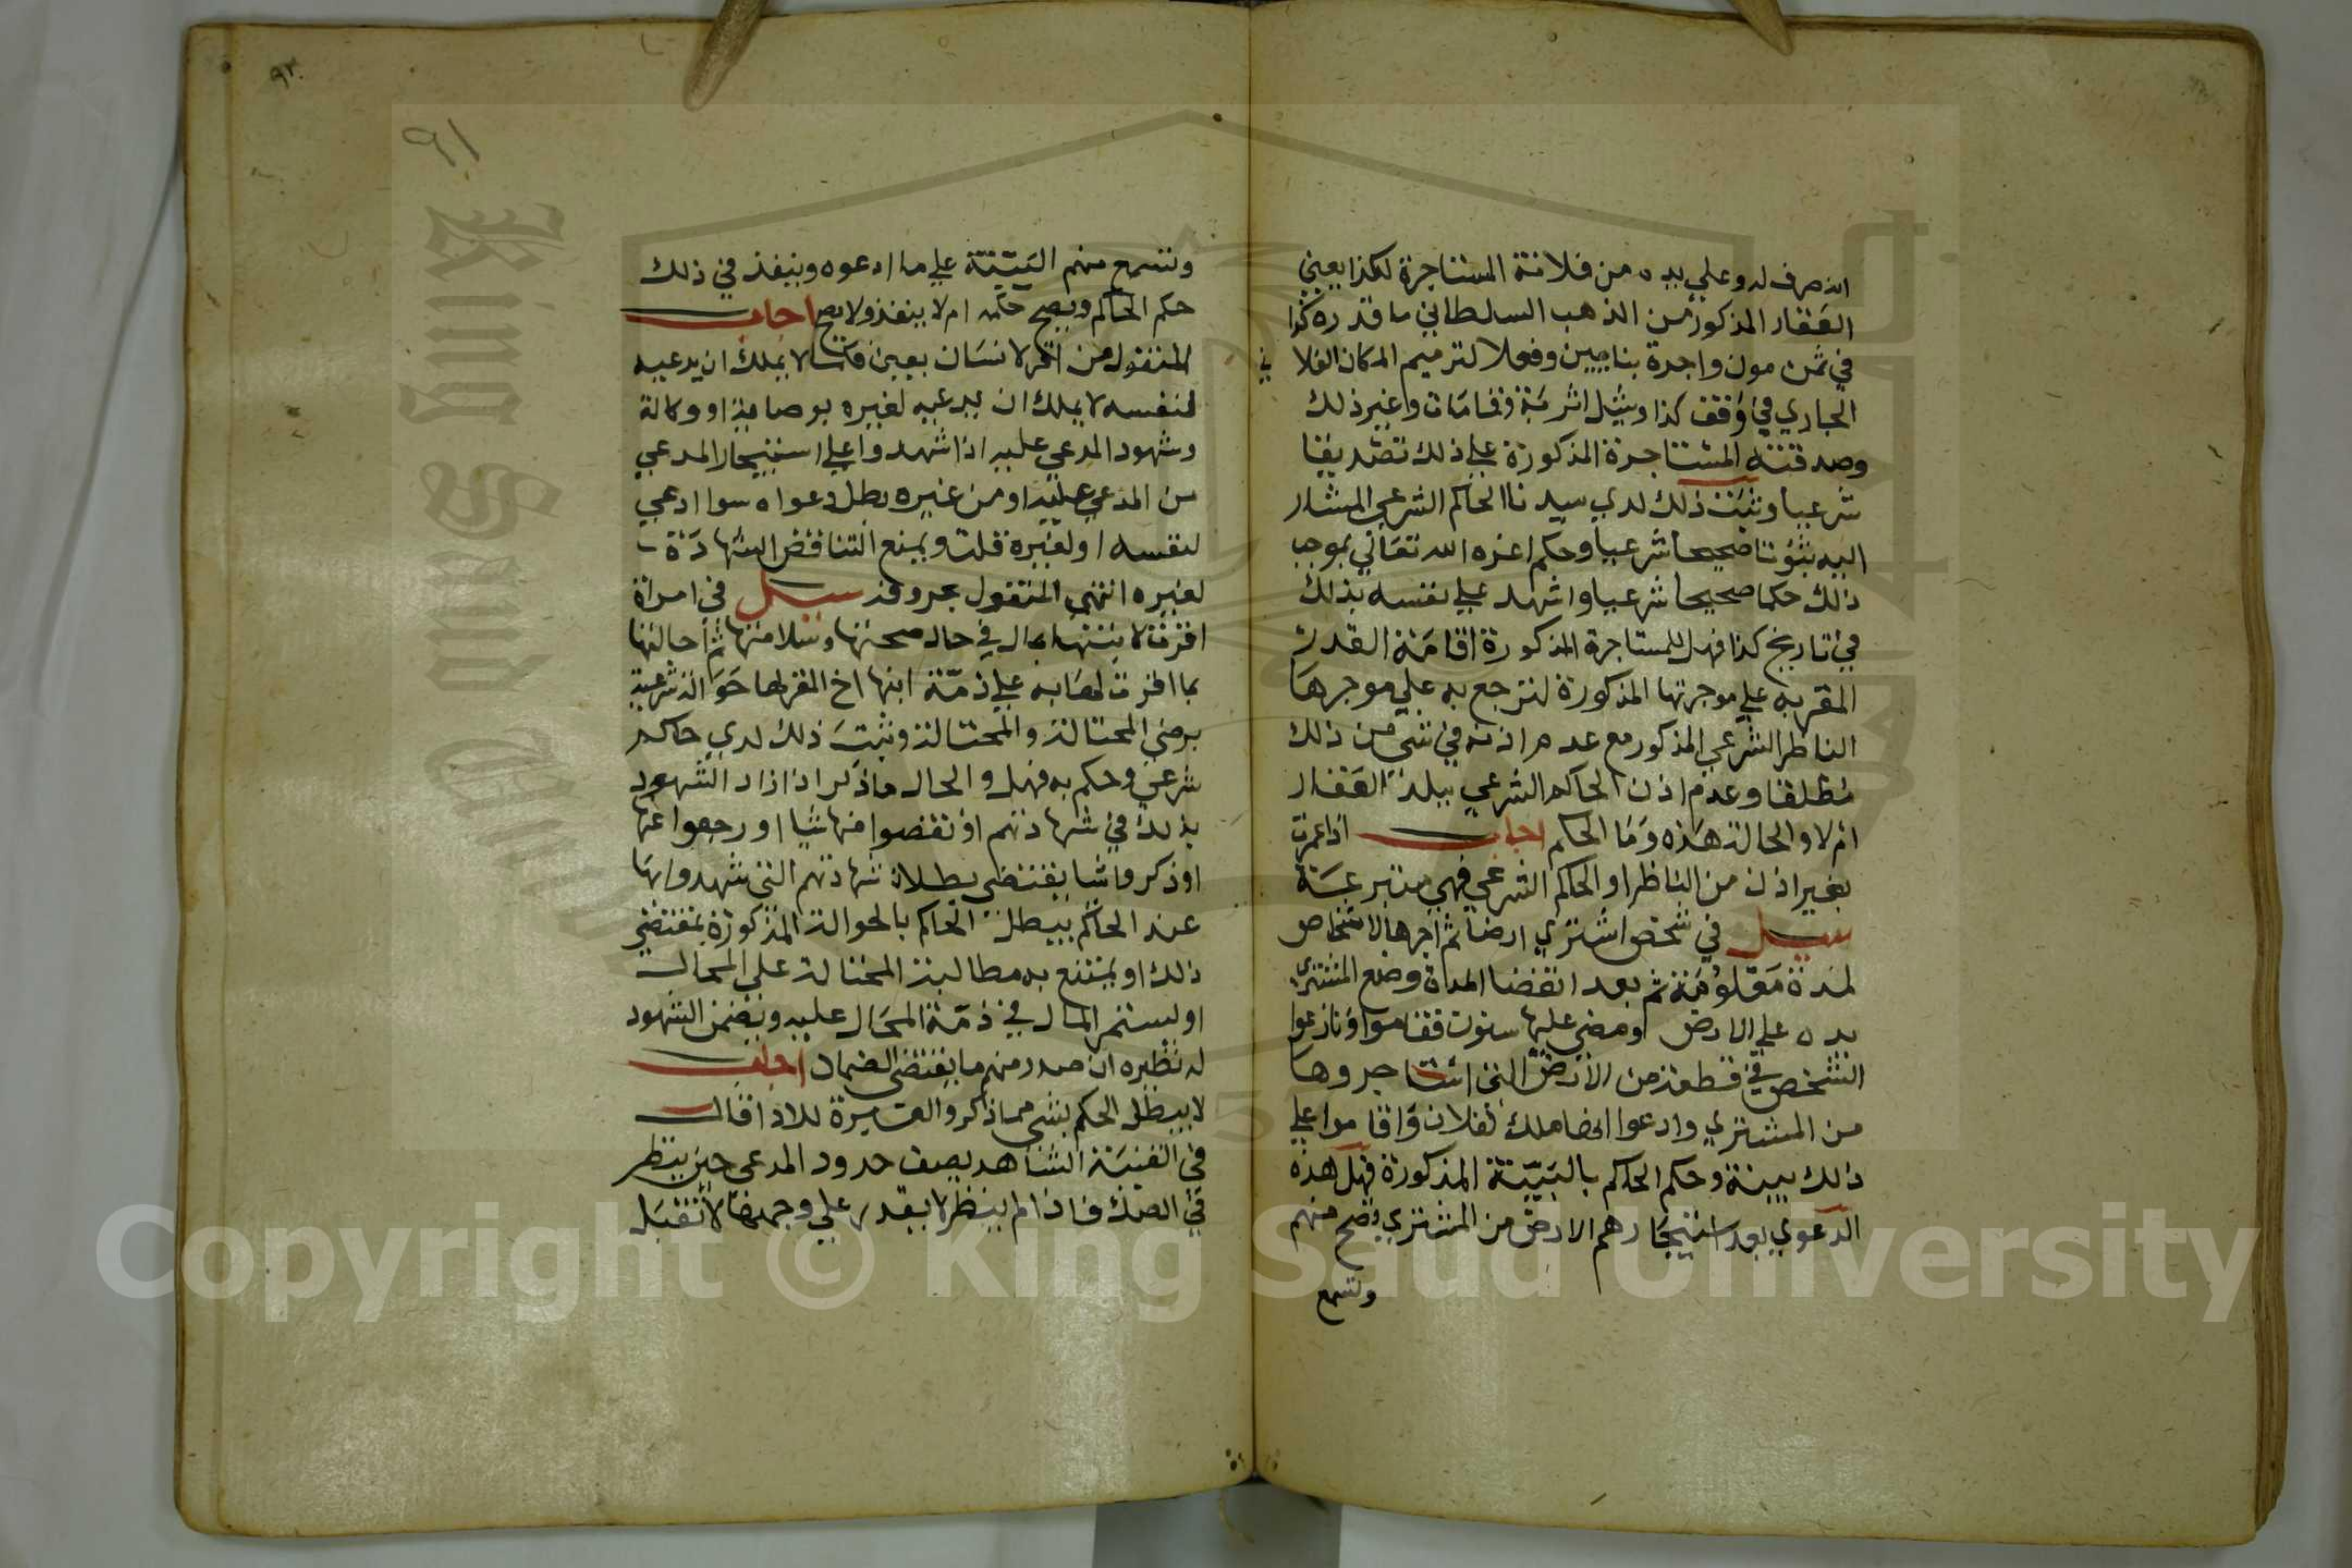 انه صرف له وعلي يده من فلانة المستاجرة لهكذا يعني
العقار المذكور من الذهب السلطاني ما قدره كذا
في ثمن مون واجرة بنايين وفعلا لترميم المكان الفلاني
الجاري في وقف كذا وشيل اتربة وقمامات وغير ذلك
وصدقته المستاجرة المذكورة علي ذلك تصديقا
شرعيا وثبت ذلك لدي سيدنا الحاكم الشرعي المشار
اليه ثبوتا صحيحا شرعيا وحكم اعزه الله تعالي بموجب
ذلك حكما صحيحا شرعيا واشهد علي نفسه بذلك
في تاريخ كذا فهل للمستاجرة المذكورة اقامة القدر
المقر به علي موجرتها المذكورة لترجع به علي موجرها
الناظر الشرعي المذكور مع عدم اذنه في شي من ذلك
مطلقا وعدم اذن الحاكم الشرعي ببلدة العقار
ام لا والحالة هذه وما الحكم اجاب اذا عمرت
بغير اذن من الناظر او الحاكم الشرعي فهي متبرعة
سيل في شخص اشتري ارضا ثم اجرها لاشخاص
لمدة معلومة ثم بعد انقضا المدة وضع المشتري
يده علي الارض ومضي عليها سنون فقاموا ونازعوا
الشخص في قطعة من الارض التي استاجروها
من المشتري وادعوا انها ملك لفلان واقاموا علي
ذلك بينة وحكم الحاكم بالبينة المذكورة فهل هذه
الدعوي بعد استيجارهم الارض من المشتري تصح منهم
وتسمع
٩٢
٩١
وتسمع منهم البينة علي ما ادعوه وينفذ في ذلك
حكم الحاكم ويصح حكمه ام لا ينفذ ولا يصح اجاب
المنقول من اقر لانسان بعين فكما لا يملك ان يدعيه
لنفسه لا يملك ان يدعيه لغيره بوصاية او وكالة
وشهود المدعي عليه اذا شهدوا علي استيجار المدعي
من المدعي عليه او من غيره بطل دعواه سوا ادعي
لنفسه او لغيره قلت ويمنع التناقض الشهادة
لغيره انتهي المنقول بحروفه سيل في امراة
اقرت لابنتها بمال في حال صحتها وسلامتها ثم احالتها
بما اقرت لها به علي ذمة ابنها اخ المقر لها حوالة شرعية
برضي المحتالة والمحتالة وثبت ذلك لدي حاكم
شرعي وحكم به فهل والحال ما ذكر اذا زاد الشهود
بذلك في شهادتهم او نقصوا منها شيا او رجعوا عنها
او ذكروا شيا يقتضي بطلان شهادتهم التي شهدوا بها
عند الحاكم يبطل الحاكم بالحوالة المذكورة بمقتضي
ذلك او يمتنع به مطالبة المحتالة علي المحال
او يستمر المال في ذمة المحال عليه ويضمن الشهود
له نظيره ان صدر منهم ما يقتضي الضمان اجاب
لا يبطل الحكم بشي مما ذكر والعبرة للادا قال
في القنية الشاهد يصف حدود المدعي حين ينظر
في الصك فاذا لم ينظر لا يقدر علي وجهها لا تقبل
Copyright © King Saud University
King Saud University